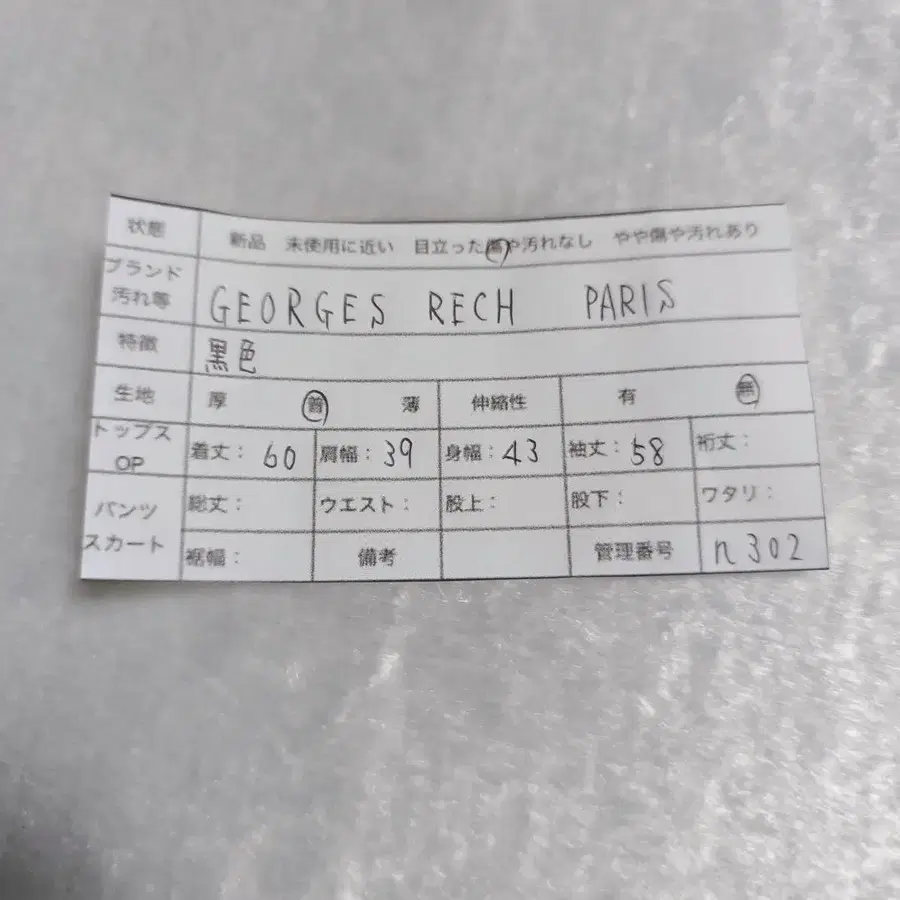 状態 新品 未使用に近い 目立った傷や汚れなし やや傷や汚れあり
ブランド
汚れ等 GEORGES RECH PARIS
特徴 黒色
生地 厚 普 薄 伸縮性 有 無
トップス
OP 着丈：60 肩幅：39 身幅：43 袖丈：58 裄丈：
パンツ
スカート 総丈： ウエスト： 股上： 股下： ワタリ：
裾幅： 備考 管理番号 n302